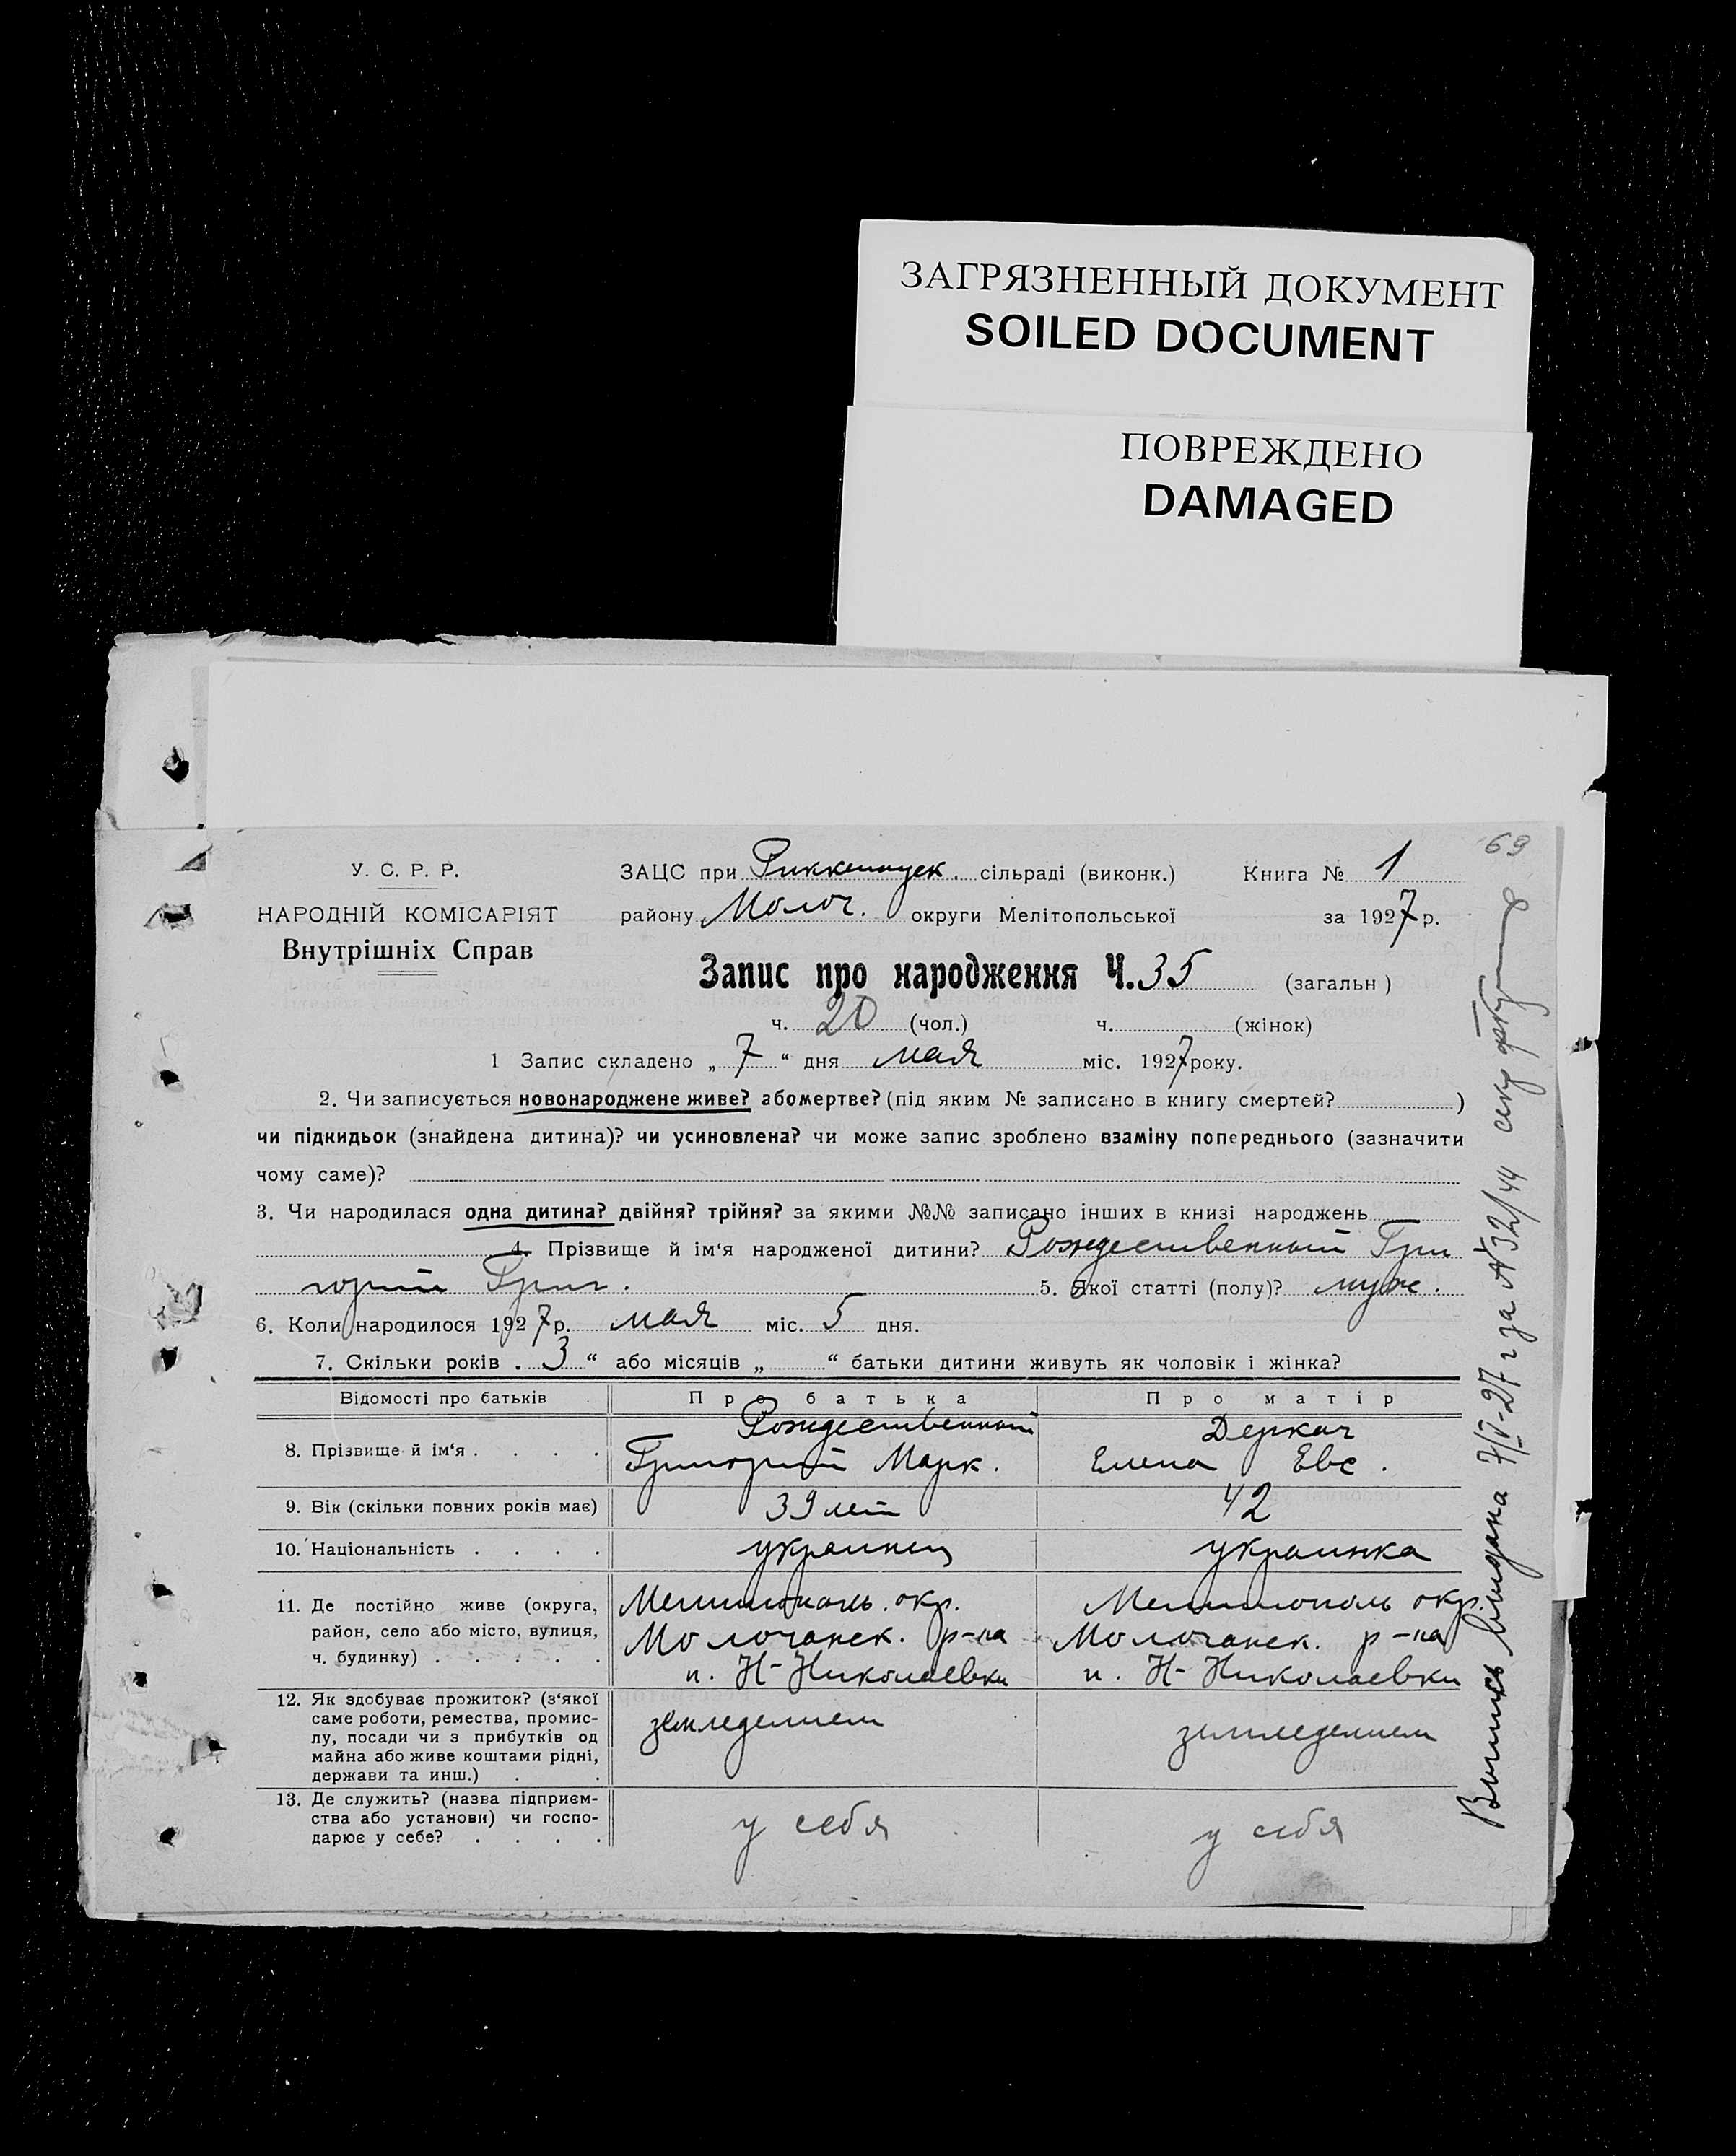 ЗАГРЯЗНЕННЫЙ ДОКУМЕНТ
SOILED DOCUMENT
ПОВРЕЖДЕНО
DAMAGED
69
У. С. Р. Р.
НАРОДНІЙ КОМІСАРІЯТ
Внутрішніх Справ
ЗАЦС при Риккенауск. сільраді (виконк.) Книга № 1
району Молоч. округи Мелітопольської за 1927 р.
Запис про народження Ч. 35 (загальн)
ч. 20 (чол.) ч. (жінок)
1 Запис складено „ 7 “ дня мая міс. 1927 року.
2. Чи записується новонароджене живе? або мертве? (під яким № записано в книгу смертей? )
чи підкидьок (знайдена дитина)? чи усиновлена? чи може запис зроблено взаміну попереднього (зазначити
чому саме)?
3. Чи народилася одна дитина? двійня? трійня? за якими №№ записано інших в книзі народжень
4. Прізвище й ім‘я народженої дитини? Рождественный Гри
горий Григ. 5. Якої статті (полу)? муж.
6. Коли народилося 1927 р. мая міс. 5 дня.
7. Скільки років . 3 “ або місяців „ “ батьки дитини живуть як чоловік і жінка?
Відомості про батьків Про батька Про матір
8. Прізвище й ім‘я . . . . Рождественный Деркач
Григорий Марк. Елена Евс.
9. Вік (скільки повних років має) 39 лет 42
10. Національність . . . . украинец украинка
11. Де постійно живе (округа, Мелитополь. окр. Мелитополь окр.
район, село або місто, вулиця, Молочанск. р-на Молочанск. р-на
ч. будинку) . . . . . п. Н-Николаевки п. Н-Николаевки
12. Як здобуває прожиток? (з‘якої
саме роботи, ремества, промис- земледелием земледелием
лу, посади чи з прибутків од
майна або живе коштами рідні,
держави та инш.) . .
13. Де служить? (назва підприєм-
ства або установи) чи госпо- у себя у себя
дарює у себе? . . . .
Выпись выдана 7/V-27 г за № 32/44 секр